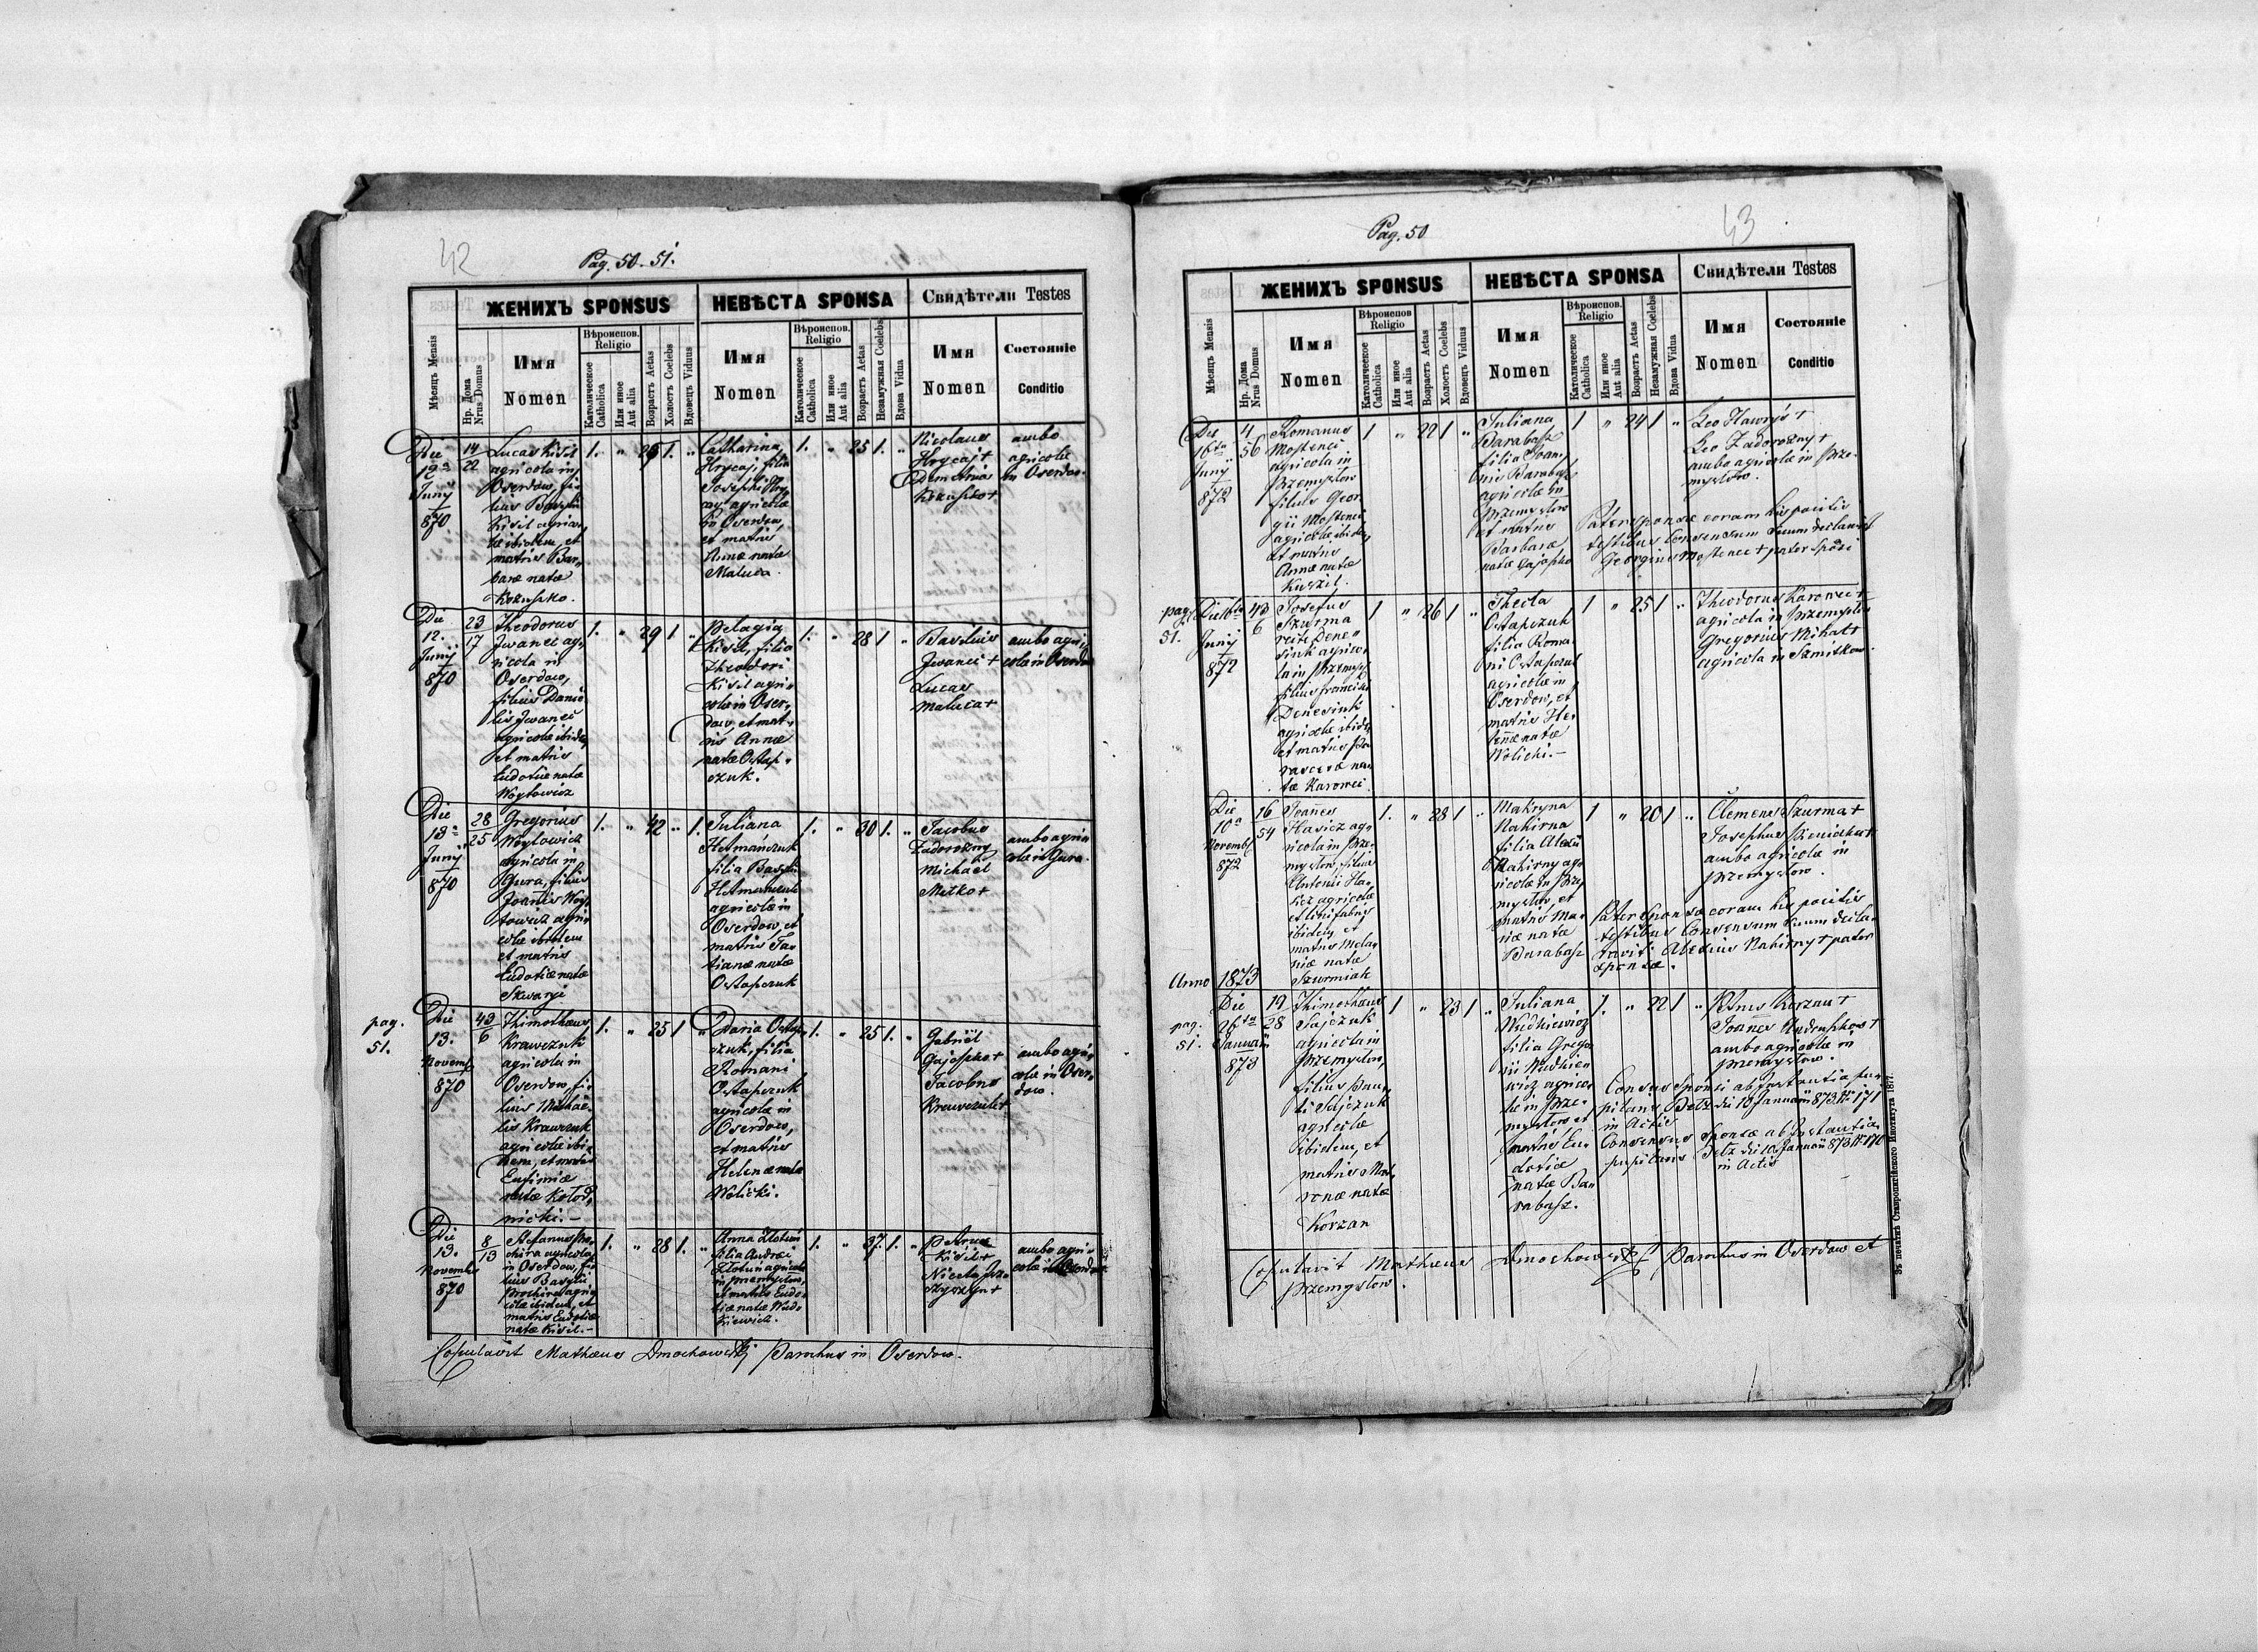 42
Pag. 50. 51.
ЖЕНИХЪ SPONSUS
НЕВѢСТА SPONSA
Свидѣтели Testes
Мѣсяцъ Mensis
Нр. Дома
Nrus Domus
Имя
Nomen
Вѣроиспов.
Religio
Католическое
Catholica
Или иное
Aut alia
Возрастъ Aetas
Холостъ Coelebs
Вдовецъ Viduus
Имя
Nomen
Вѣроиспов.
Religio
Католическое
Catholica
Или иное
Aut alia
Возрастъ Aetas
Незамужная Coelebs
Вдова Vidua
Имя
Nomen
Состояніе
Conditio
Die
12a
Junij
870
14
22
Lucas Kisil
agricola in
Oserdow, fi-
lius Basylii
Kisil agrico-
lae ibidem, et
matris Bar-
barae natae
Kozuszko.
1. " 1. "
Catharina
Hrycaj, filia
Josephi Hry-
caj agricolae
in Oserdow,
et matris
Annae natae
Maluca.
1. " 25 1. "
Nicolaus
Hrycaj +
ambo
agricolae
in Oserdow.
Die
12.
Junij
870
23
17
Theodorus
Jwanei ag-
ricola in
Oserdow,
filius Danie-
lis Jwanei
agricolae ibidem
et matris
Eudociae natae
Woytowicz
1. " 29 1 "
Pelagia
Kisil, filia
Theodori
Kisil agri-
colae in Oser-
dow, et mat-
ris Annae
natae Ostap-
czuk.
1. " 28 1 "
Basilius
Jwanei +
Lucas
Maluca +
ambo agri-
colae in Oserdow
Die
13a
Junij
870
28
25
Gregorius
Woytowicz
agricola in
Gura, filius
Joannis Woy-
towicz agri-
colae ibidem
et matris
Eudociae natae
1. " 42 " 1.
Juliana
Hetmańczuk
filia Basylii
Hetmańczuk
agricolae in
Oserdow, et
matris Ta-
tianae natae
Ostapczuk
1. " 30 1. "
Jacobus
Zadorozny
Michael
Mitko +
ambo agri-
colae in Gura.
pag.
51.
Die
13.
Novemb
870
43
6
Thimotheus
Krawczuk
agricola in
Oserdow, fi-
lius Michae-
lis Krawczuk
agricolae ibi-
dem, et matris
Eufimiae
natae Kołod-
nicki. —
1. " 25 1 "
Daria Ostap-
czuk, filia
Romani
Ostapczuk
agricolae in
Oserdow,
et matris
Helenae natae
Wolicki.
1. " 25 1. "
Gabriël
Gajoszko +
Jacobus
Krawczuk +
ambo agri-
colae in Oser-
dow.
Die
13.
Novembr
870
8
13
Stefanus Pro-
chira agricola
in Oserdow, fi-
lius Basylii
Prochira agri-
colae ibidem, et
matris Eudociae
natae Kisil. —
1. " 28 1. "
Anna Złotun
filia Andreae
Złotun agricolae
in Przemysłow,
et matris Eudo-
ciae natae Wud-
kiewicz.
1. " 37. 1. "
Petrus
Kisil +
ambo agri-
colae in Oserdow
Copulavit Mathaeus Dmochowski Parochus in Oserdow.
43
Pag. 50
ЖЕНИХЪ SPONSUS
НЕВѢСТА SPONSA
Свидѣтели Testes
Мѣсяцъ Mensis
Нр. Дома
Nrus Domus
Имя
Nomen
Вѣроиспов
Religio
Католическое
Catholica
Или иное
Aut alia
Возрастъ Aetas
Холостъ Coelebs
Вдовецъ Viduus
Имя
Nomen
Вѣроиспов.
Religio
Католическое
Catholica
Или иное
Aut alia
Возрастъ Aetas
Незамужная Coelebs
Вдова Vidua
Имя
Nomen
Состояніе
Conditio
Die
16ta
Junij
872
4
56
Romanus
Mostenci
agricola in
Przemysłow
filius Geor-
gii Mostenci
agricolae ibidem,
et matris
Annae natae
Kuszil.
1 " 22 1 "
Juliana
Barabasz
filia Joan-
nis Barabasz
agricolae in
Przemysłow
et matris
Barbarae
natae Gajoszko
1 " 24 1 "
Leo Hawryś +
Leo Zadorozny +
ambo agricolae in Prze-
mysłow.
Pater sponsae coram his positis
testibus Consensum suum declaravit
Georgius Mostenci + pater sponsi
pag.
51.
Die 16ta
Junij
872
43
6
Josefus
Szurma
recte Dene-
siuk agrico-
la in Przemysł
filius Francisci
Denesiuk
agricolae ibidem
et matris Pa-
rascevae na-
tae Karowci
1 " 26 1 "
Thecla
Ostapczuk
filia Roma-
ni Ostapczuk
agricolae in
Oserdow, et
matris He-
lenae natae
Wolicki. —
1 " 25 1 "
Theodorus Karowci +
agricola in Przemysłow
Gregorius Mihal +
agricola in Szmitkow.
Die
10a
Novemb
872
16
54
Joannes
Hawicz ag-
ricola in Prze-
mysłow, filius
Antonii Ha-
wicz agricolae
et
ibidem, et
matris Mela-
niae natae
Szurmiak
1. " 28 1 "
Makryna
Nahirna
filia Alexii
Nahirny ag-
ricolae in Prze-
mysłow, et
matris Ma-
riae natae
Barabasz
1 " 20 1 "
Clemens Szurma +
ambo agricolae in
Przemysłow.
Pater Sponsae coram his positis
testibus Consensum suum decla-
ravit Alexius Nahirny + pater
sponsae.
Anno 1873
pag.
51.
Die
26ta
Januarii
873
19
28
Thimotheus
Sajczuk
agricola in
Przemysłow,
filius Pau-
li Sajczuk
agricolae
ibidem, et
matris Mat-
ronae natae
Korzan
1 " 23 1 "
Juliana
Wudkiewicz
filia Grego-
rii Wudkie-
wicz agrico-
lae in Prze-
mysłow et
matris Eu-
dociae
natae Ba-
rabasz.
1. " 22 1 "
Petrus Korzan +
ambo agricolae in
Przemysłow.
Consensus Sponsi ab Instantia pu-
pilaris Bełz die 10 Januarii 873 N 171
in Actis
Consensus Sponsae ab Instantia
pupilaris Bełz die 10 Januarii 873 N 170
in Actis
Copulavit Mathaeus Dmochowski Parochus in Oserdow et
Przemysłow.
Зъ печатнѣ Ставропигійского Института 1877.